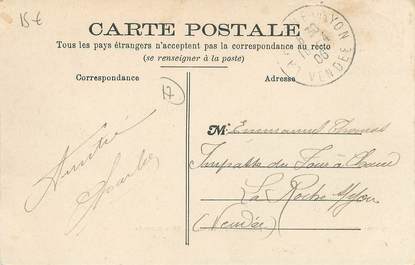 15-€
CARTE POSTALE
Tous les pays étrangers n'acceptent pas la correspondance au recto
(se renseigner à la poste)
Correspondance
Adresse
17
YON
06
VENDÉE
Amitié
M. Emmanuel
Impasse du Four à Chaux
La Roche s/Yon
(Vendée)